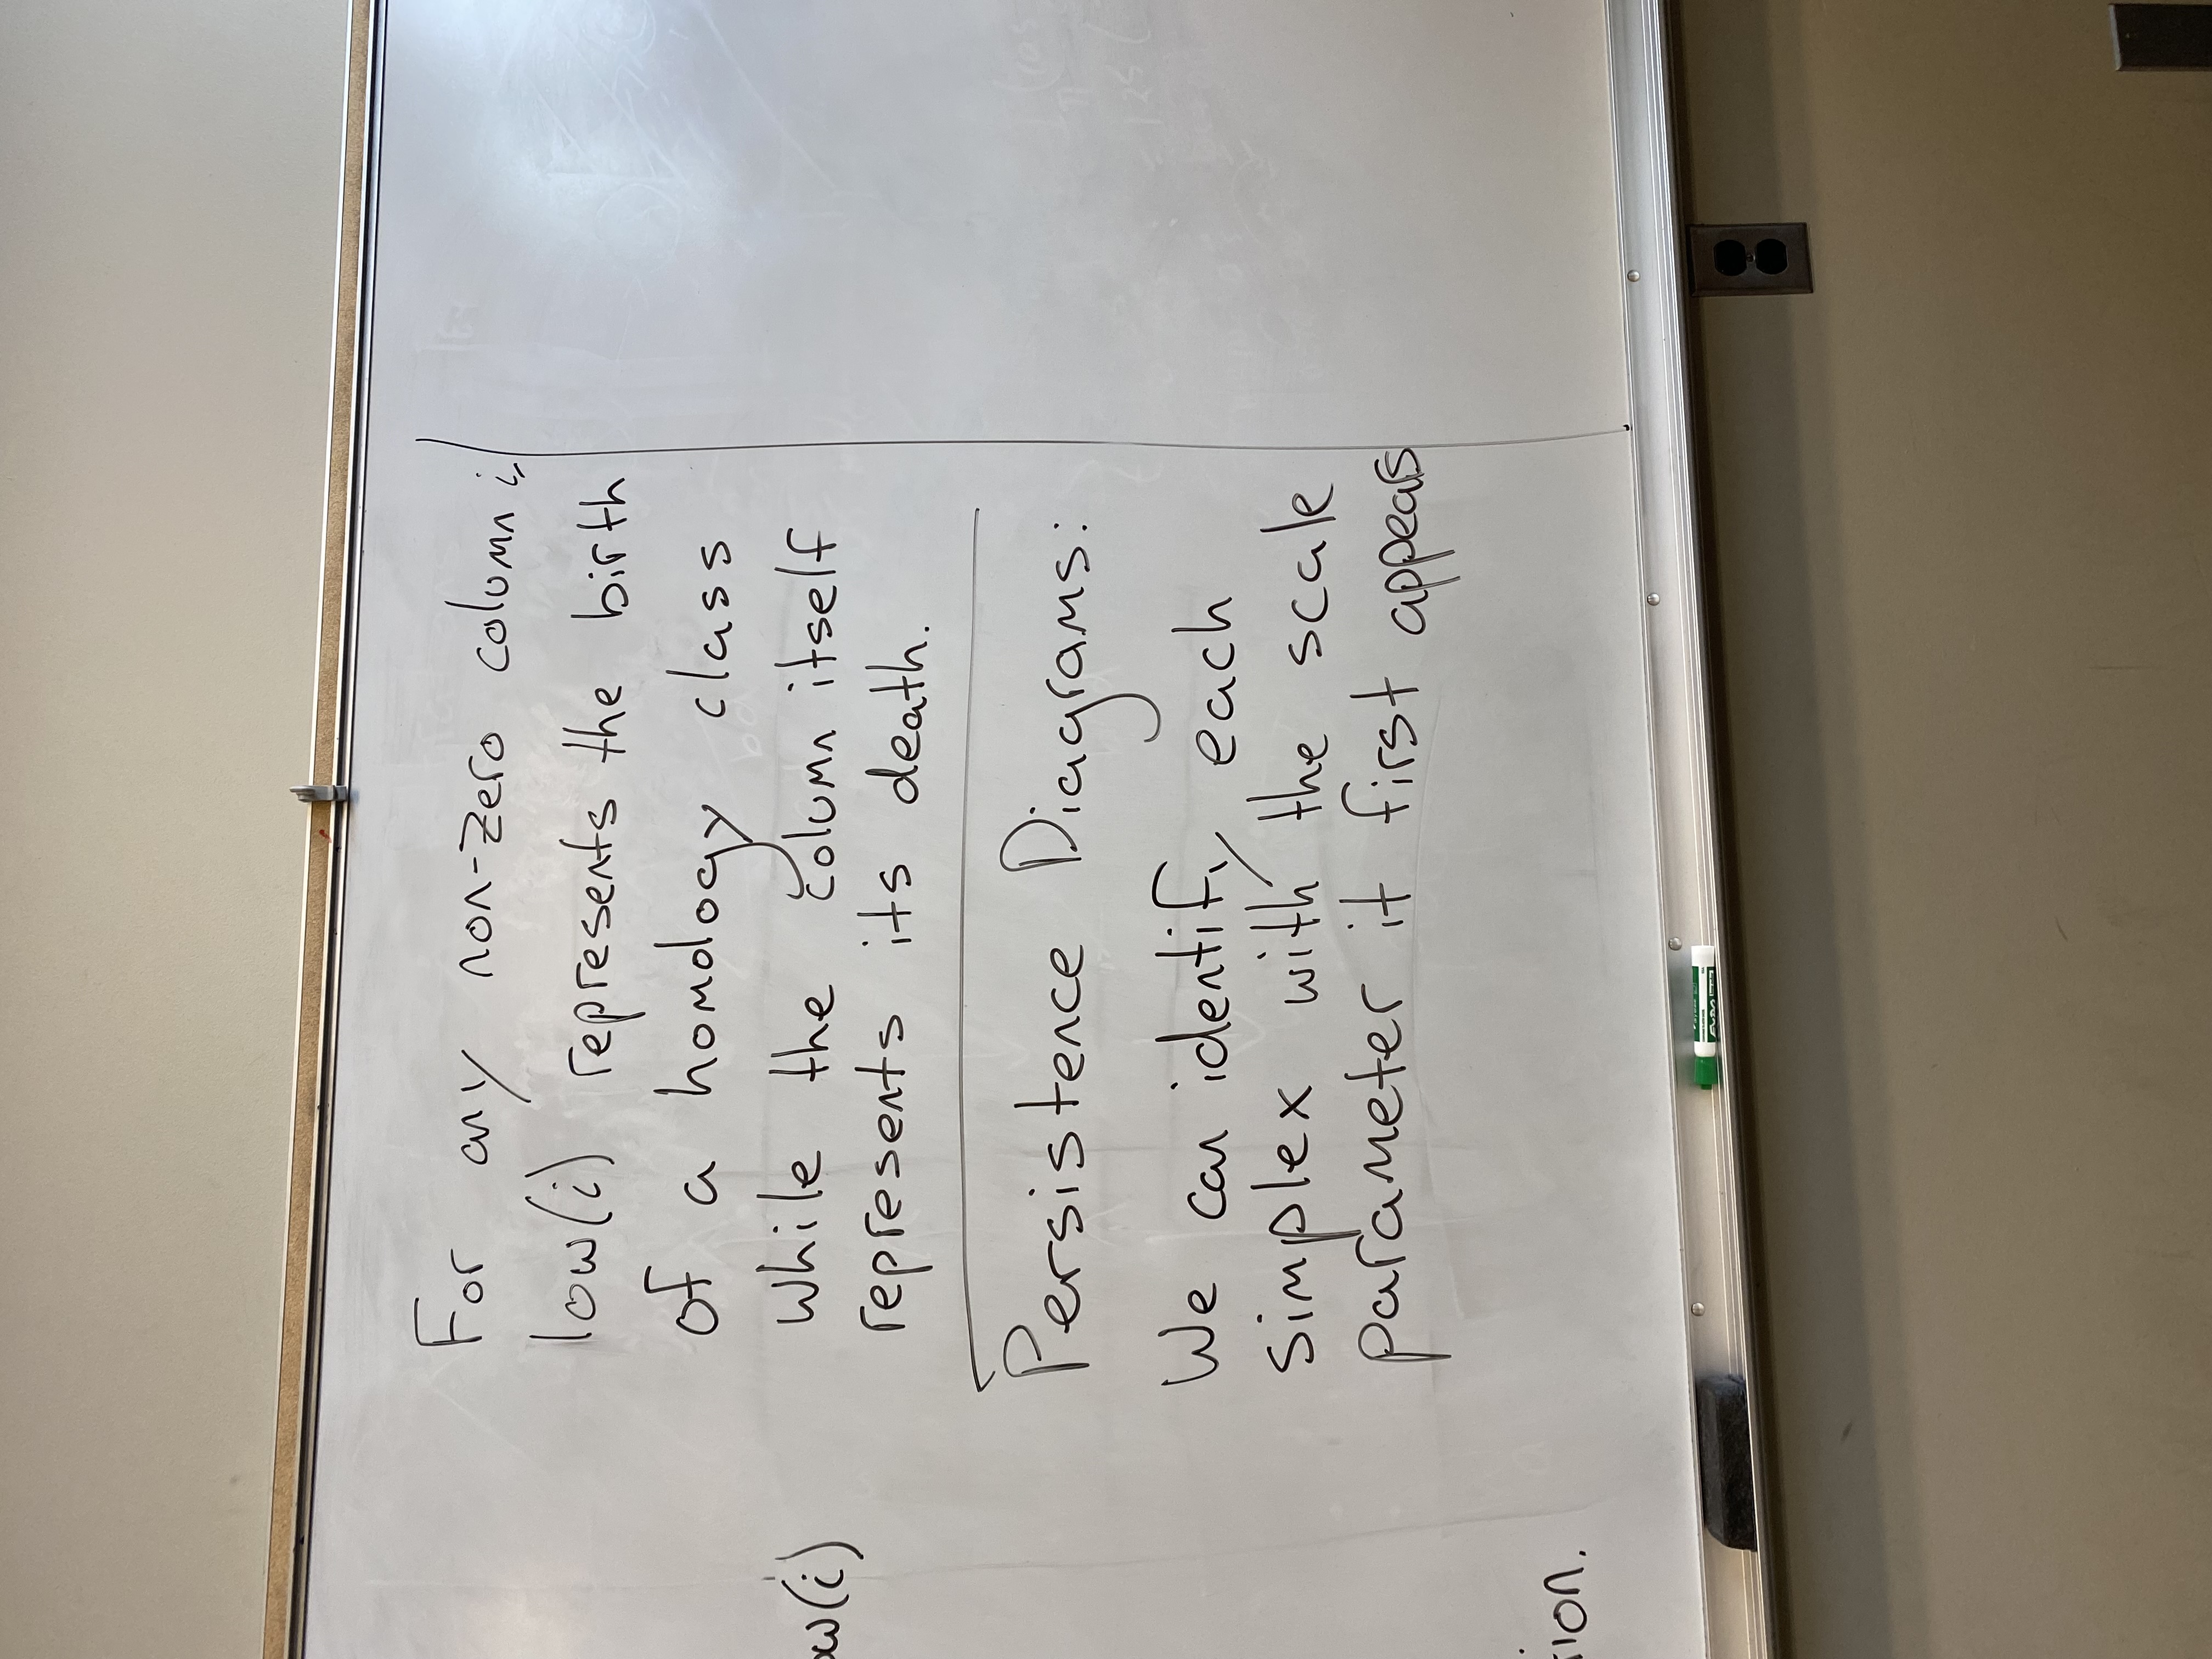 For any non-zero column i,
low(i) represents the birth
of a homology class
while the column itself
represents its death.
Persistence Diagrams:
We can identify each
simplex with the scale
parameter it first appears
ow(i)
tion.
EXPO